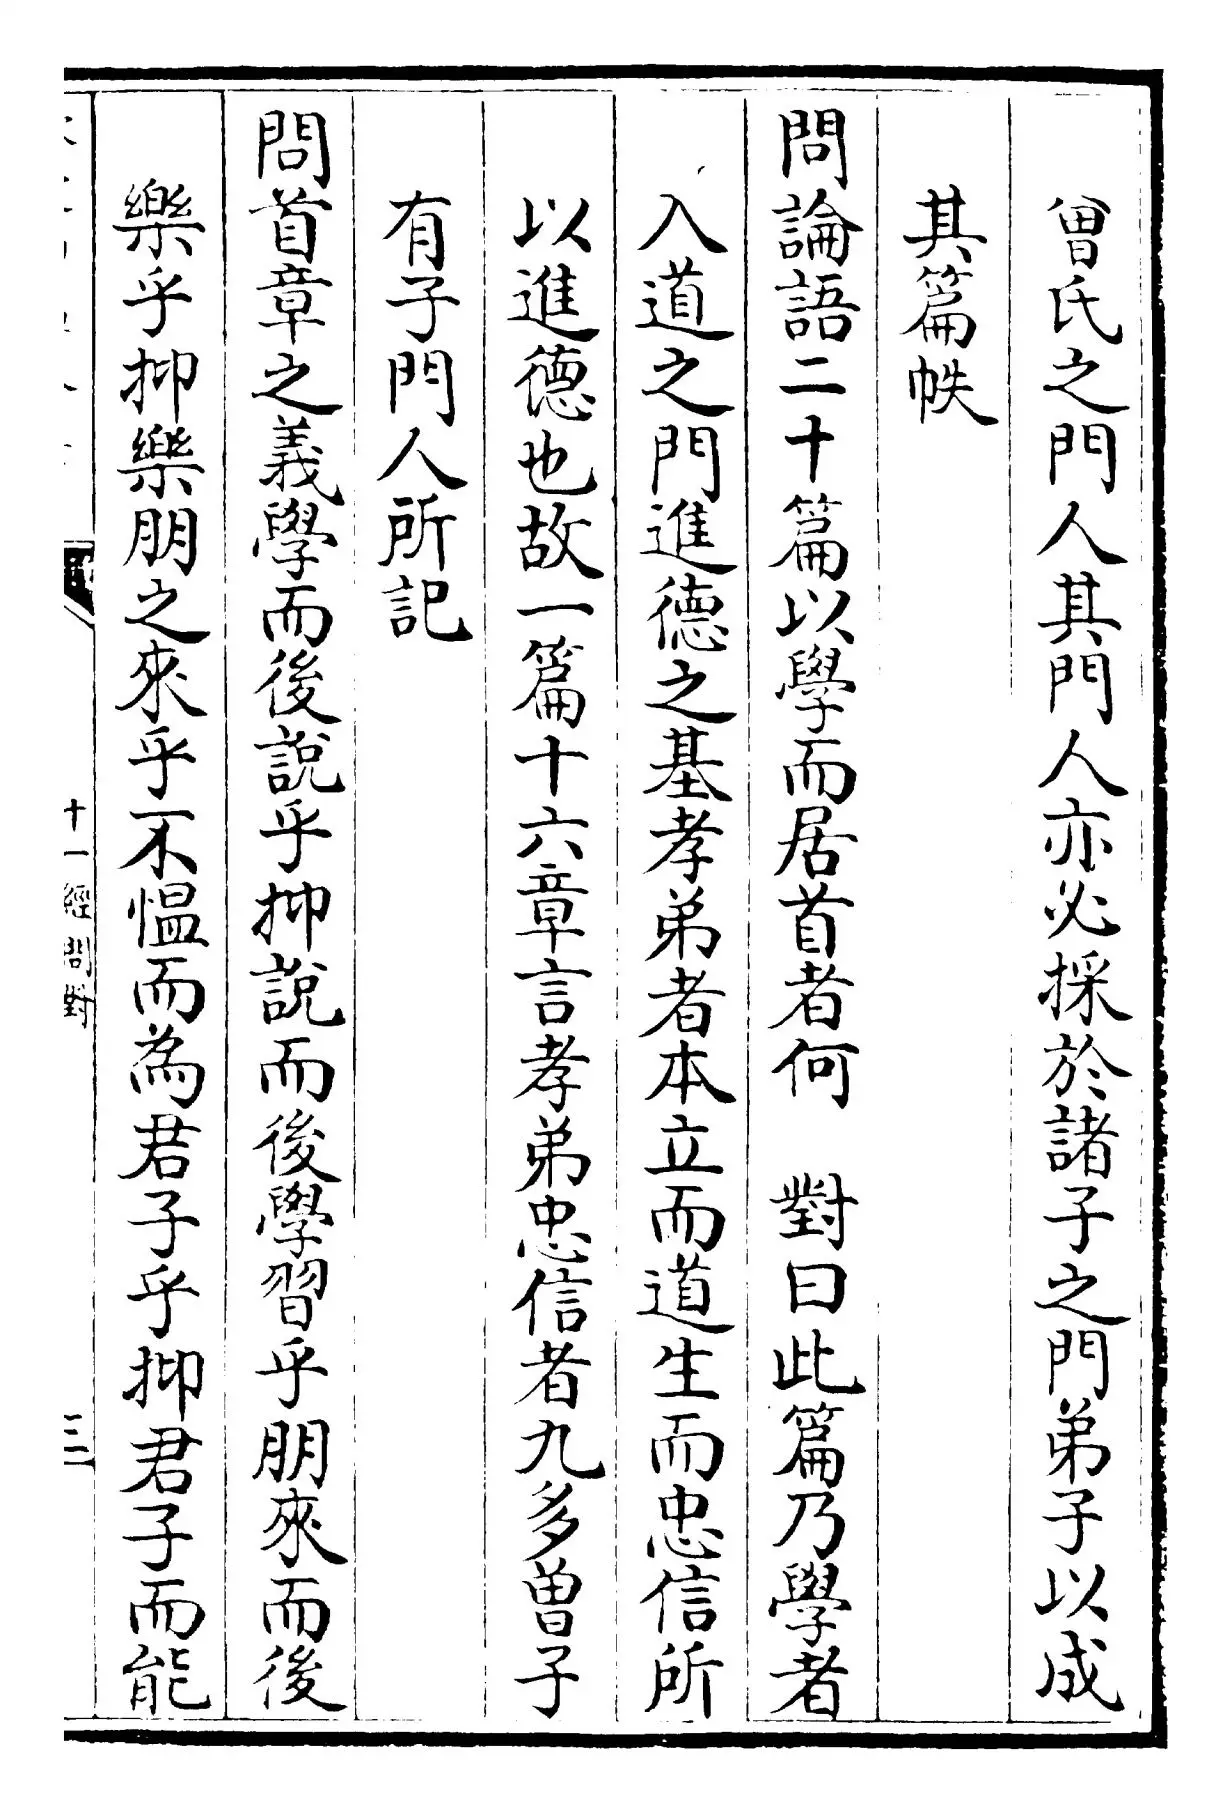 曾氏之門人其門人亦必採於諸子之門弟子以成
其篇帙
問論語二十篇以學而居首者何 對曰此篇乃學者
入道之門進德之基孝弟者本立而道生而忠信所
以進德也故一篇十六章言孝弟忠信者九多曽子
有子門人所記
問首章之義學而後說乎抑說而後學習乎朋來而後
樂乎抑樂朋之來乎不愠而為君子乎抑君子而能
十一經問對
三